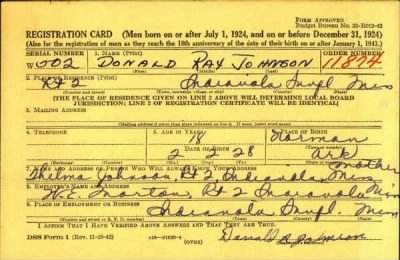 FORM APPROVED
Budget Bureau No. 33-R012-42
REGISTRATION CARD (Men born on or after July 1, 1924, and on or before December 31, 1924)
(Also for the registration of men as they reach the 18th anniversary of the date of their birth on or after January 1, 1943.)
SERIAL NUMBER 1. NAME (Print) ORDER NUMBER
W 502 DONALD RAY JOHNSON 11874
2. PLACE OF RESIDENCE (Print)
Rt 2 Indianola Sunfl Miss
[THE PLACE OF RESIDENCE GIVEN ON LINE 2 ABOVE WILL DETERMINE LOCAL BOARD
JURISDICTION; LINE 2 OF REGISTRATION CERTIFICATE WILL BE IDENTICAL]
3. MAILING ADDRESS
[Mailing address if other than place indicated on line 2. If same, insert word same]
4. TELEPHONE 5. AGE IN YEARS 6. PLACE OF BIRTH
18
DATE OF BIRTH
2 2 28 Ark
(Exchange) (Number) (Mo.) (Day) (Yr.) (State or country)
7. NAME AND ADDRESS OF PERSON WHO WILL ALWAYS KNOW YOUR ADDRESS mother
Thelma Johnson Rt 2 Indianola Miss
8. EMPLOYER'S NAME AND ADDRESS
Rt 2 Indianola Miss
9. PLACE OF EMPLOYMENT OR BUSINESS
Indianola Sunfl. Miss
I AFFIRM THAT I HAVE VERIFIED ABOVE ANSWERS AND THAT THEY ARE TRUE.
DSS Form 1 (Rev. 11-16-42) (OVER) Donald R Johnson